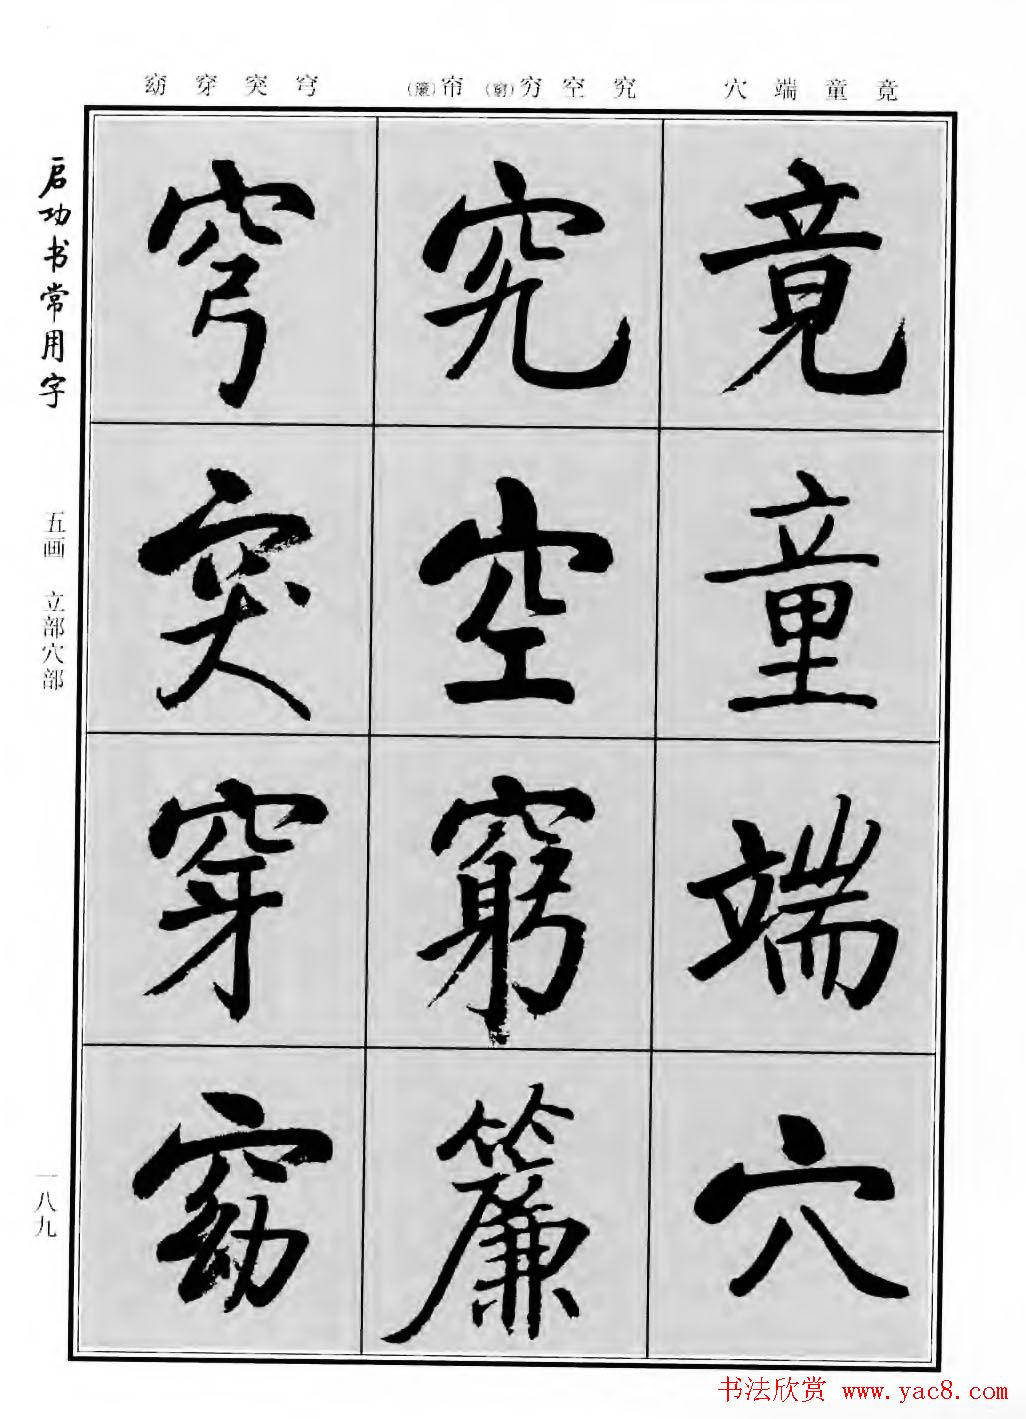 竟童端穴
究空穷(窮)帘(簾)
穹突穿窈
竟
童
端
穴
究
空
窮
簾
穹
突
穿
窈
启功书常用字
五画 立部穴部
一八九
书法欣赏 www.yac8.com